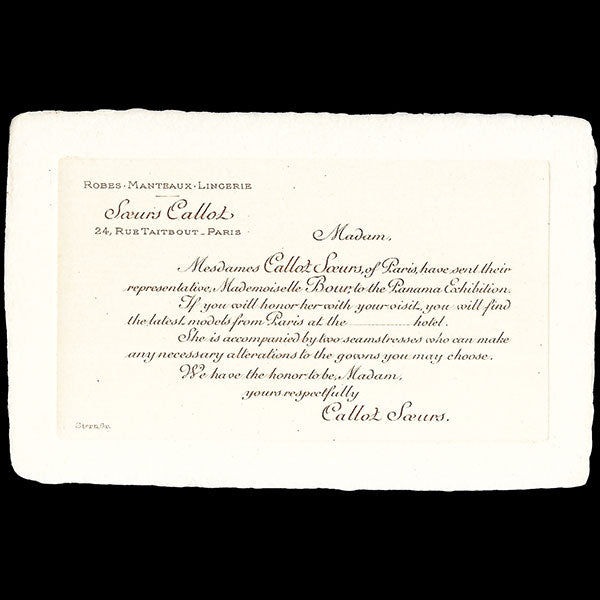 ROBES·MANTEAUX·LINGERIE
Sœurs Callot,
24, RUE TAITBOUT_PARIS
Madam,
Mesdames Callot Sœurs, of Paris, have sent their
representative, Mademoiselle Bour, to the Panama Exhibition.
If you will honor her with your visit, you will find
the latest models from Paris at the hotel.
She is accompanied by two seamstresses who can make
any necessary alterations to the gowns you may choose.
We have the honor to be, Madam,
yours respectfully
Callot Sœurs.
Stern Gr.